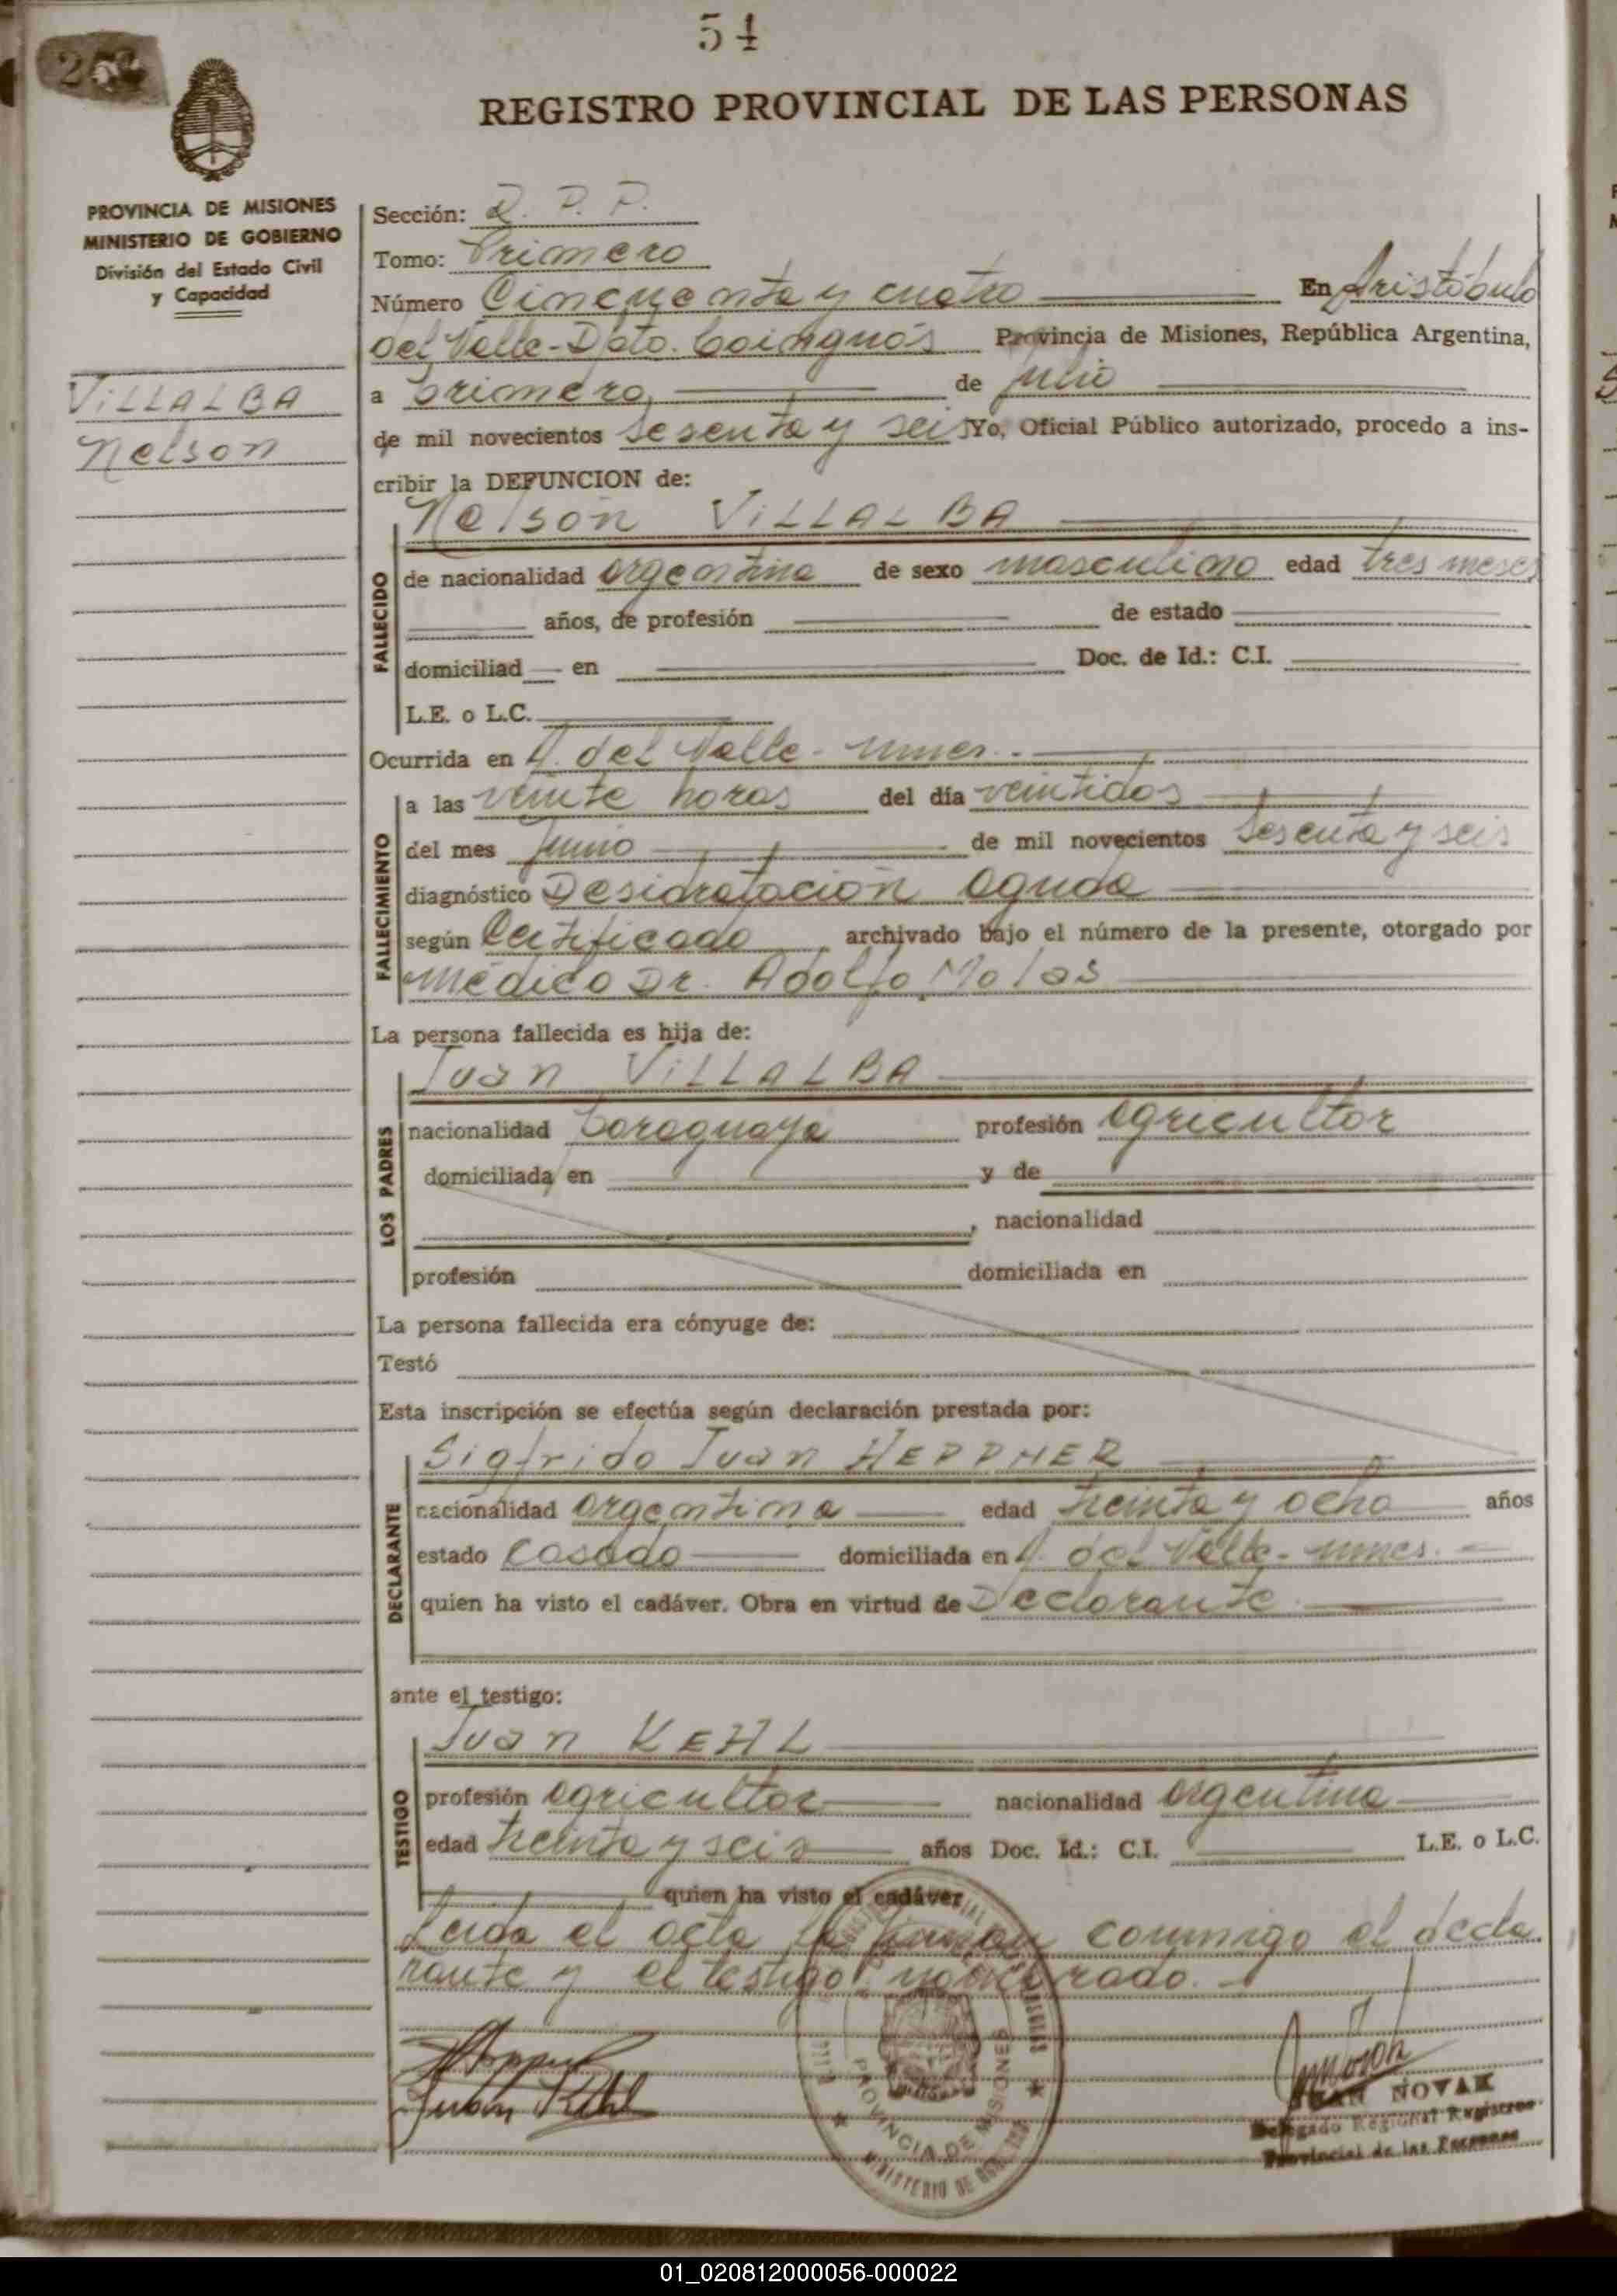 54
REGISTRO PROVINCIAL DE LAS PERSONAS
PROVINCIA DE MISIONES
MINISTERIO DE GOBIERNO
División del Estado Civil
y Capacidad
VILLALBA
Nelson
Sección: R. P. P.
Tomo: Primero
Número Cincuenta y cuatro En Aristóbulo
del Valle - Dpto. Cainguás Provincia de Misiones, República Argentina,
a primero de julio
de mil novecientos sesenta y seis Yo, Oficial Público autorizado, procedo a ins-
cribir la DEFUNCION de:
Nelson VILLALBA
FALLECIDO
de nacionalidad argentina de sexo masculino edad tres meses
años, de profesión de estado
domiciliad en Doc. de Id.: C.I.
L.E. o L.C.
Ocurrida en A. del Valle - mnes.
FALLECIMIENTO
a las veinte horas del día veintidos
del mes Junio de mil novecientos sesenta y seis
diagnóstico Desidratación aguda
según Certificado archivado bajo el número de la presente, otorgado por
médico Dr. Adolfo Molas
La persona fallecida es hija de:
Juan VILLALBA
LOS PADRES
nacionalidad Paraguaya profesión agricultor
domiciliada en y de
, nacionalidad
profesión domiciliada en
La persona fallecida era cónyuge de:
Testó
Esta inscripción se efectúa según declaración prestada por:
Sigfrido Juan HEPPNER
DECLARANTE
nacionalidad argentina edad treinta y ocho años
estado Casado domiciliada en A. del Valle - mnes.
quien ha visto el cadáver. Obra en virtud de Declarante
ante el testigo:
Juan KEHL
TESTIGO
profesión agricultor nacionalidad argentina
edad treinta y seis años Doc. Id.: C.I. L.E. o L.C.
quien ha visto el cadáver
Leida el acta la firman conmigo el decla
rante y el testigo
Juan Kehl
JUAN NOVAK
Delegado Regional Registro
Provincial de las Personas
PROVINCIA DE MISIONES
MINISTERIO DE GOBIERNO
01_020812000056-000022